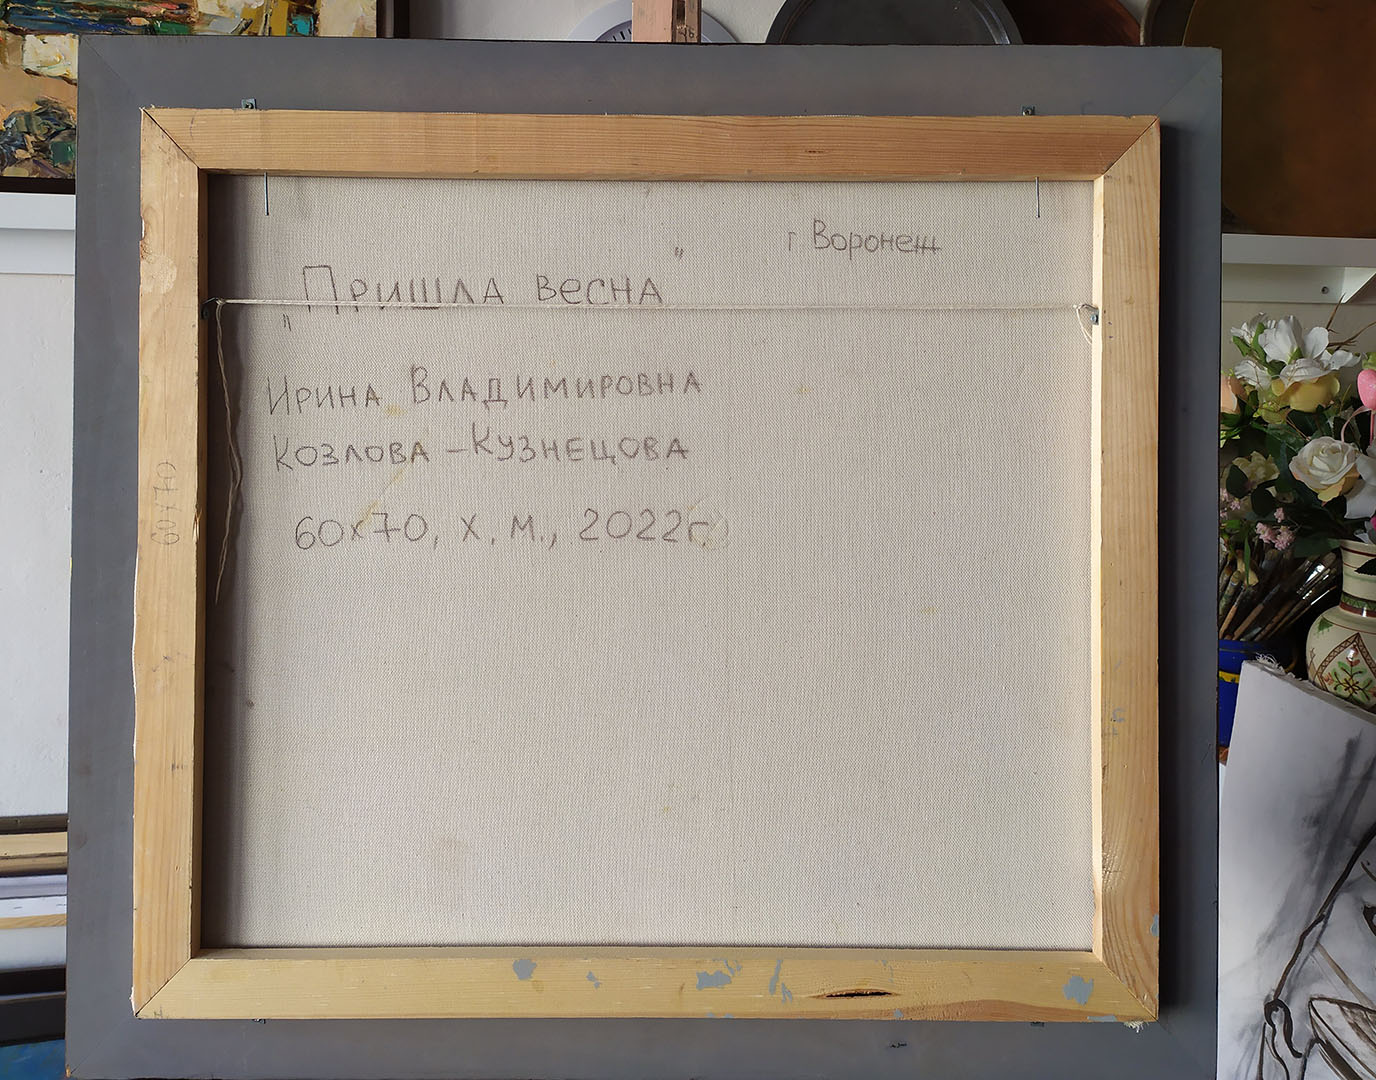 г Воронеж
„Пришла весна"
Ирина Владимировна
Козлова-Кузнецова
60х70, х, м., 2022г.
60х70